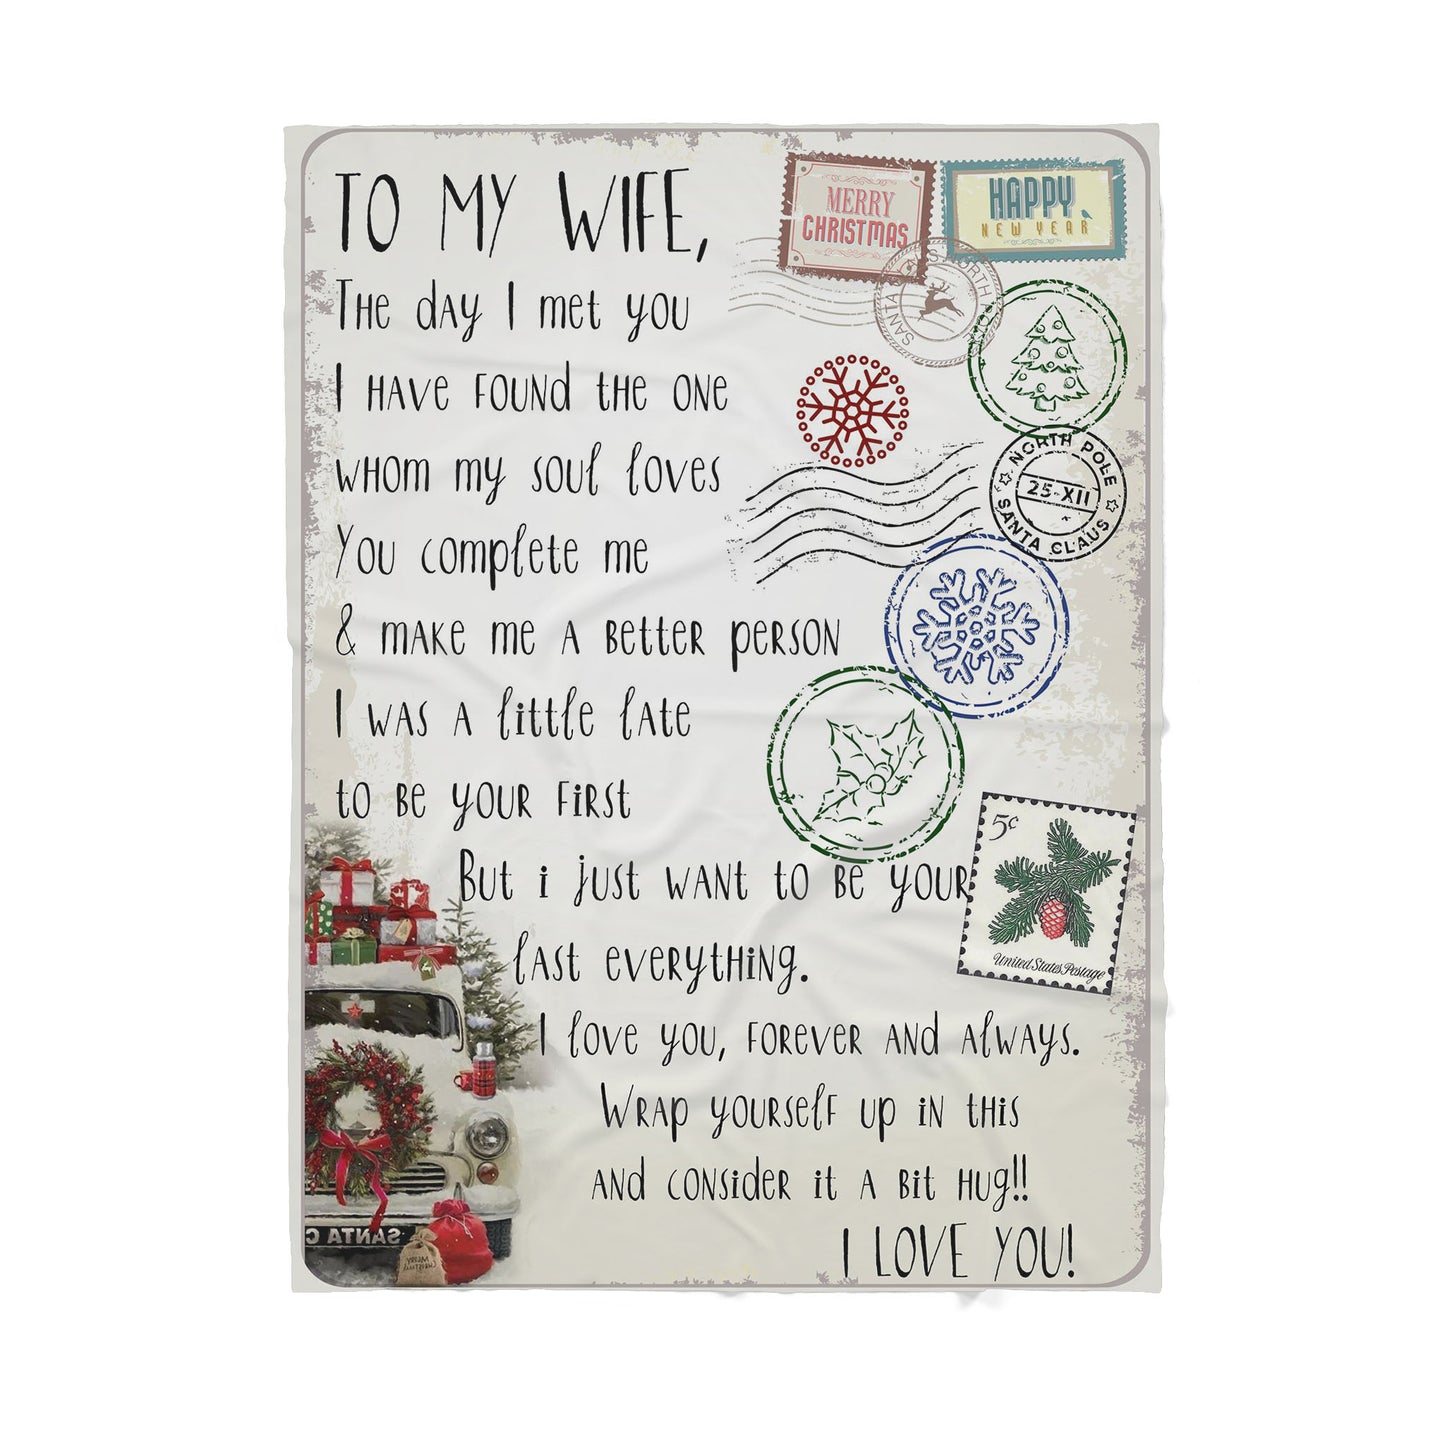 TO MY WIFE,
MERRY
CHRISTMAS
HAPPY
NEW YEAR
The day I met you
I HAVE FOUND THE ONE
whom my soul loves
You complete me
& make me a better person
I was a little late
to be your first
But i just want to be your
last everything.
I love you, forever and always.
Wrap yourself up in this
and consider it a bit hug!!
I LOVE YOU!
NORTH POLE
25-XII
SANTA CLAUS
5¢
United States Postage
SANTA C
MERRY
CHRISTMAS